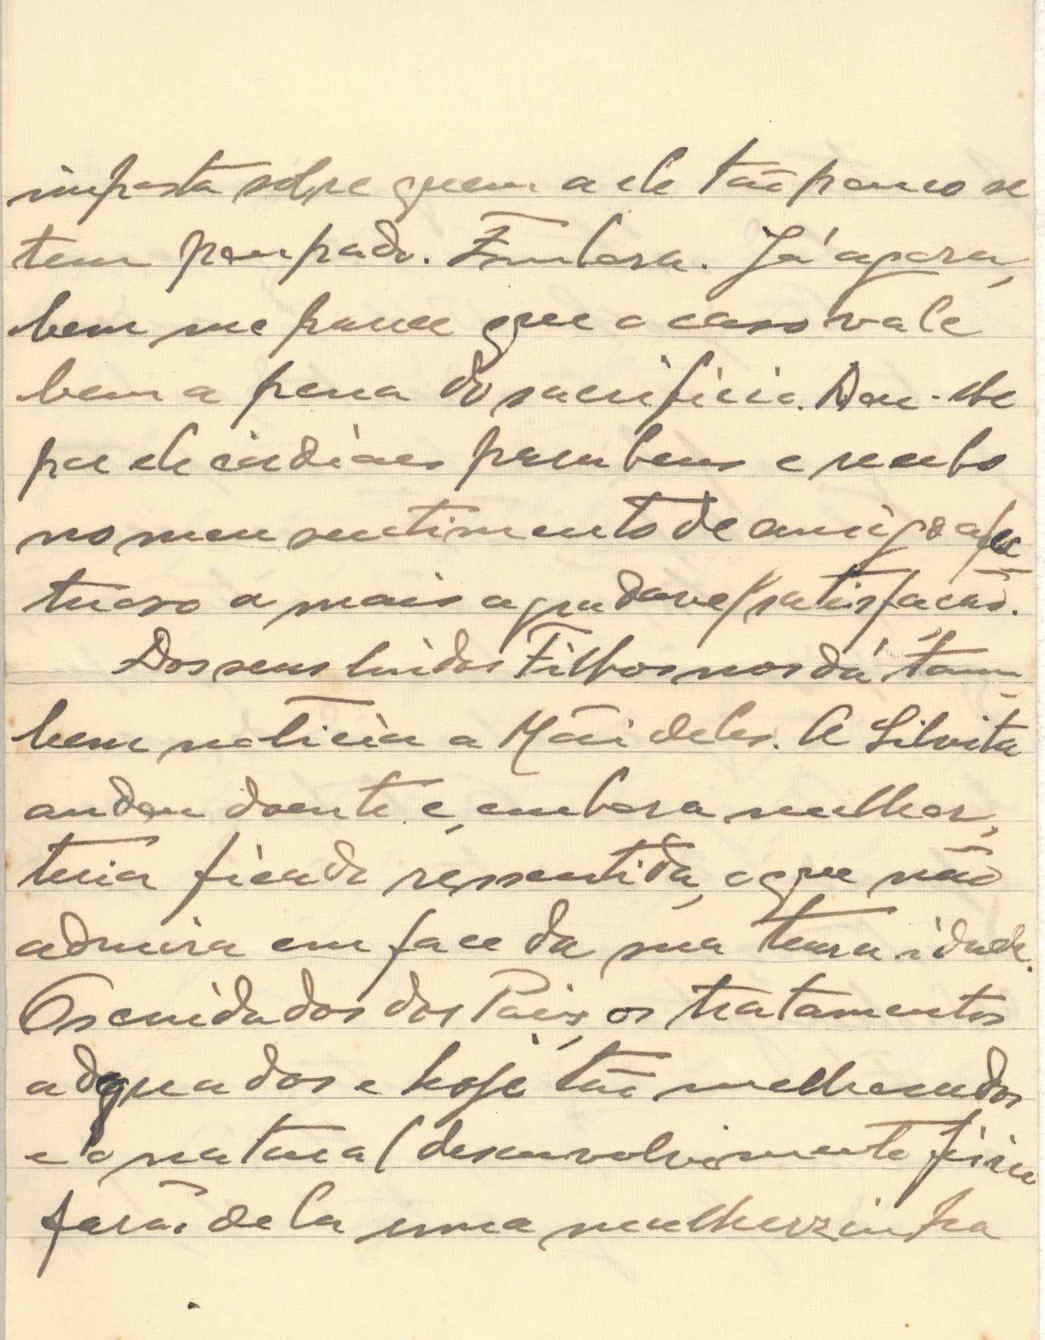 imposta sôbre quem a ele tão pouco se
tem poupado. Embora. Já agora,
bem me parece que o caso vale
bem a pena do sacrificio. Dou-lhe
por ele cordiaes parabens e recebo
no meu sentimento de amigo afe-
tuoso a mais agradavel satisfacão.
Dos seus lindos Filhos nos dá tam-
bem noticia a Mãi deles. A Silvita
andou doente e, embora melhor,
teria ficado ressentida, o que não
admira em face da sua tenra idade.
Os cuidados dos Pais, os tratamentos
adquados e hoje tão melhorados
e o natural desenvolvimento fisico
farão dela uma mulherzinha